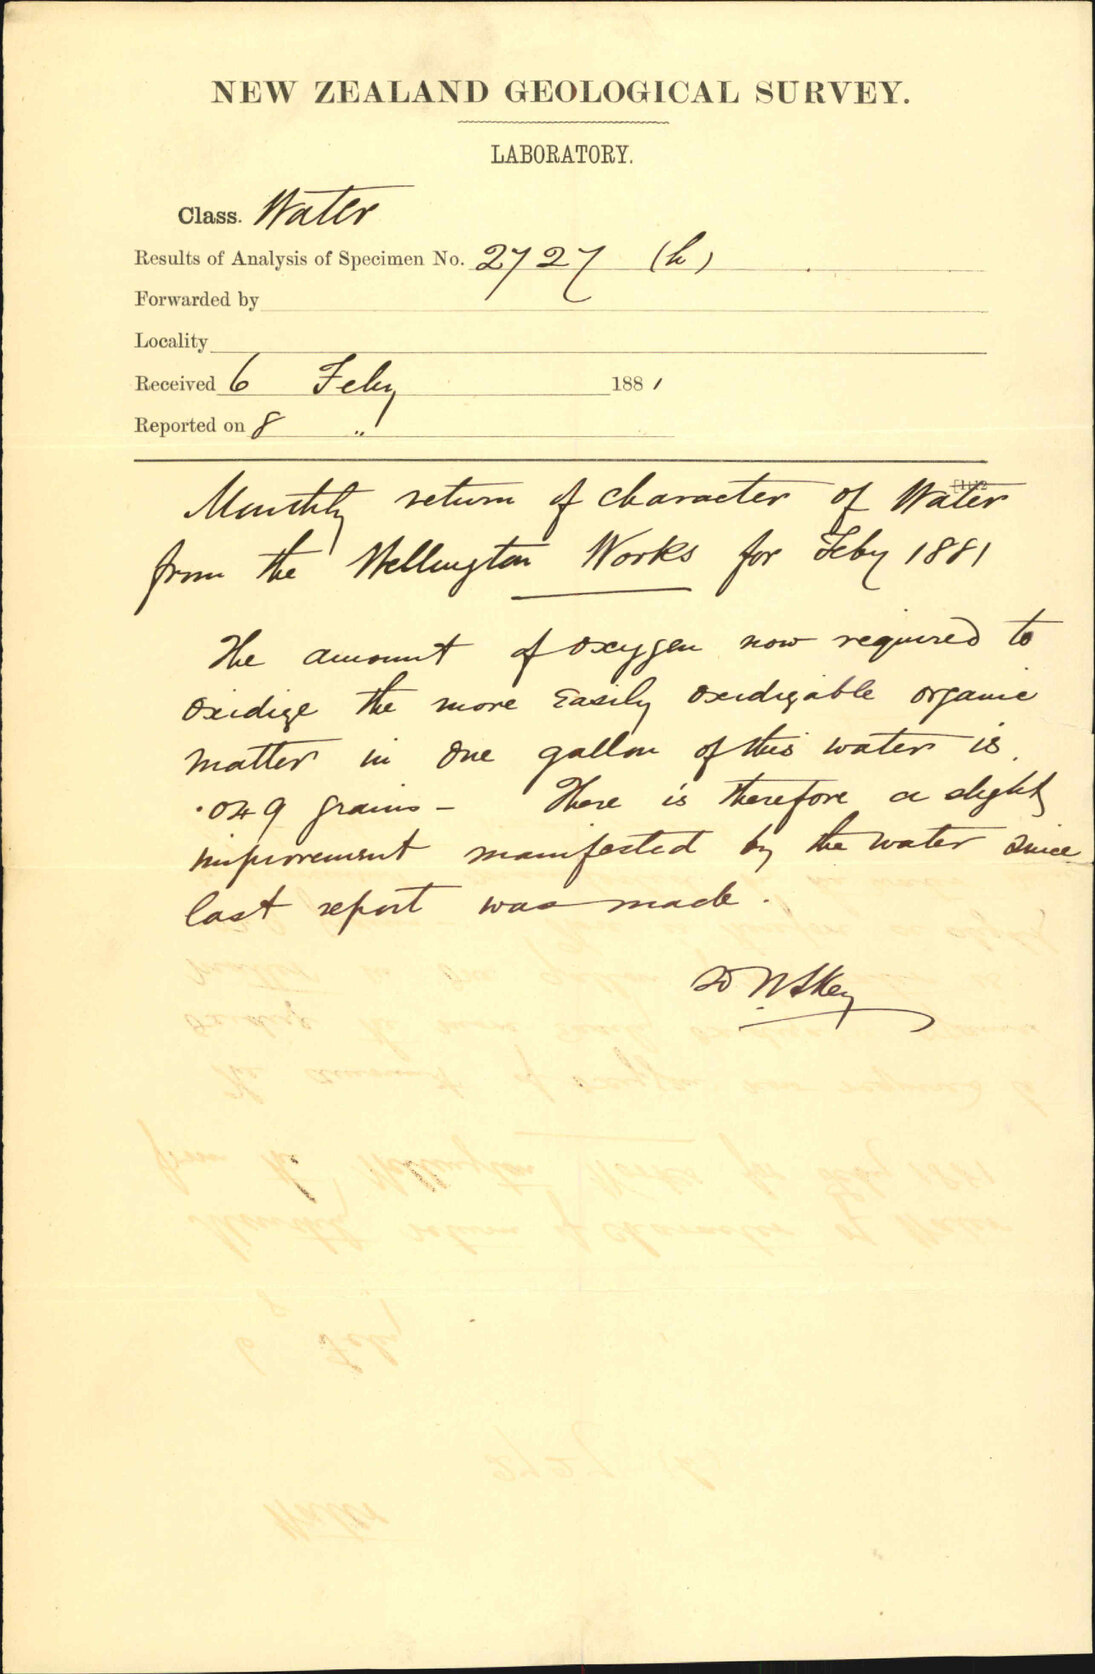 NEW ZEALAND GEOLOGICAL SURVEY.
LABORATORY.
Class. Water
Results of Analysis of Specimen No. 2727 (h)
Forwarded by
Locality
Received 6 Feby 1881
Reported on 8 "
Monthly return of character of Water
from the Wellington Works for Feby 1881
The amount of oxygen now required to
oxidize the more easily oxidizable organic
matter in one gallon of this water is
.049 grains - There is therefore a slight
improvement manifested by the water since
last report was made.
Skey